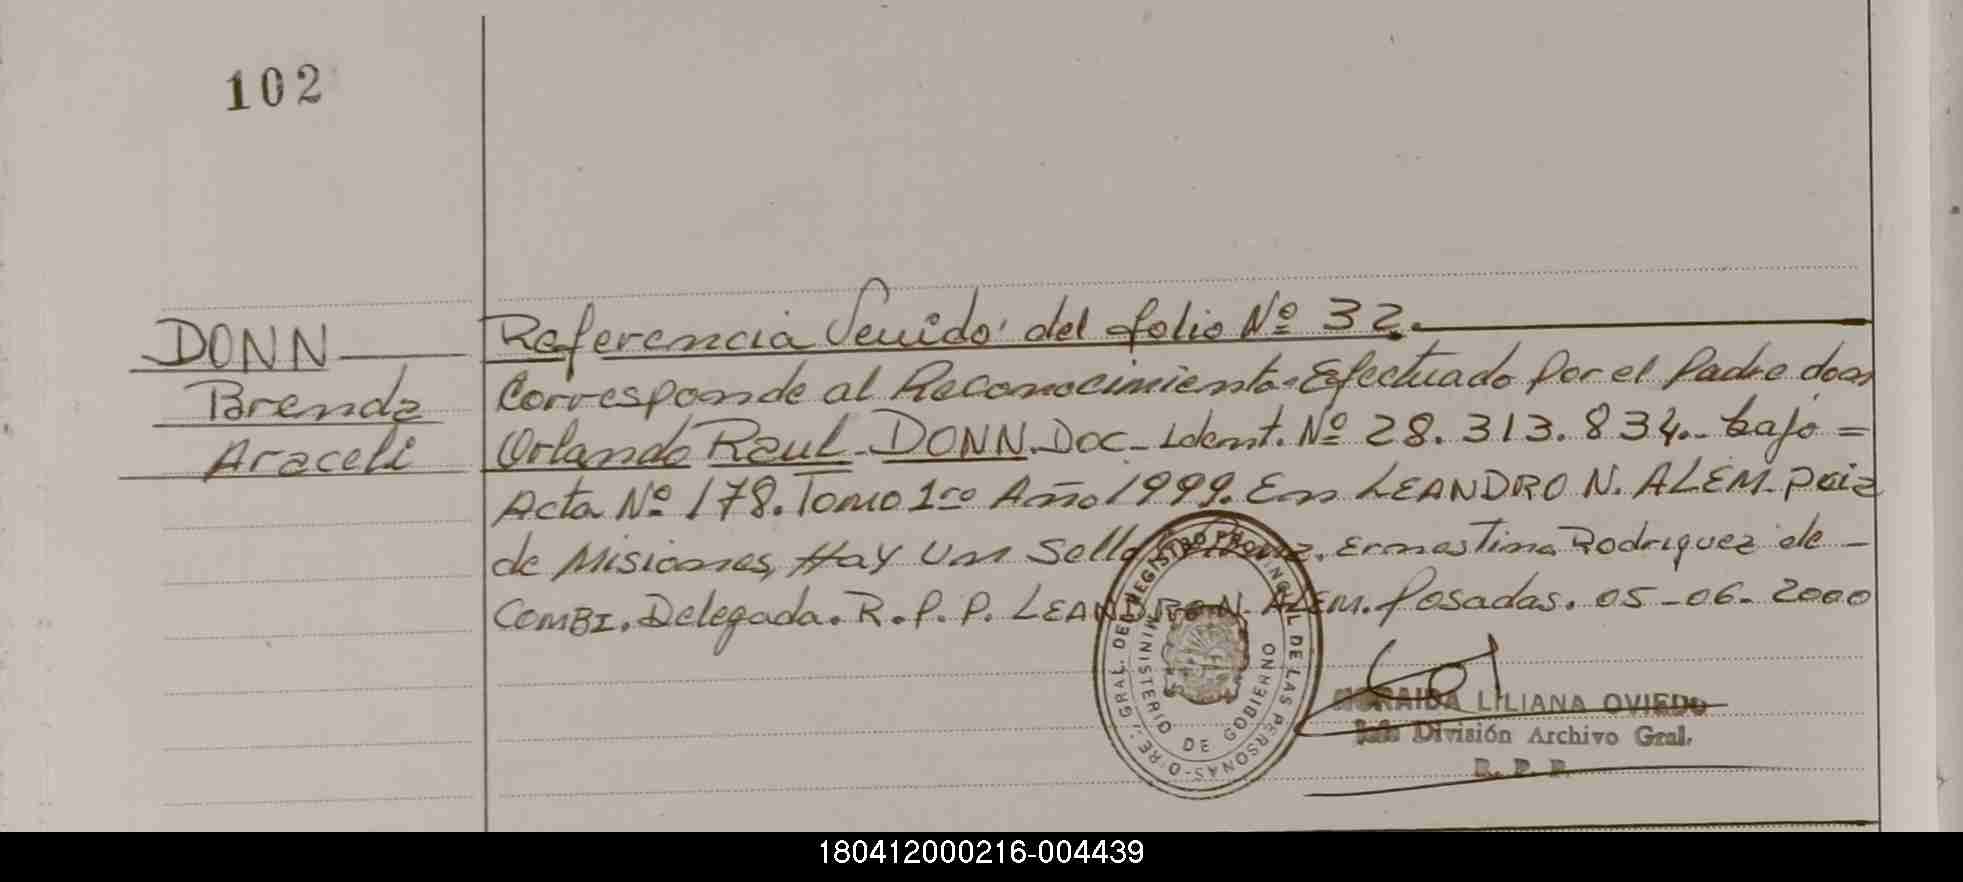 102
DONN
Brenda
Araceli
Referencia Venido del folio Nº 32.
Corresponde al Reconocimiento Efectuado por el Padre don
Orlando Raul DONN Doc. Ident. Nº 28.313.834. bajo =
Acta Nº 178. Tomo 1ro Año 1999. En LEANDRO N. ALEM.
de Misiones, Hay Un Sello Ernestina Rodriguez de -
COMBI. Delegada. R.P.P. LEANDRO N. ALEM. Posadas. 05-06-2000
GRAL. DEL REGISTRO PROVINCIAL DE LAS PERSONAS
MINISTERIO DE GOBIERNO
LILIANA OVIEDO
Jefe División Archivo Gral.
R. P. P.
180412000216-004439